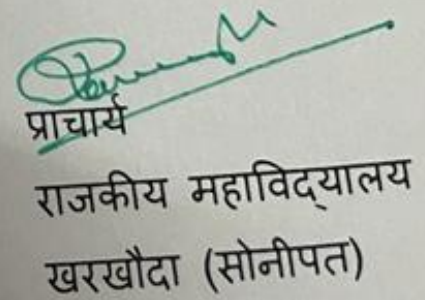 प्राचार्य
राजकीय महाविद्यालय
खरखौदा (सोनीपत)